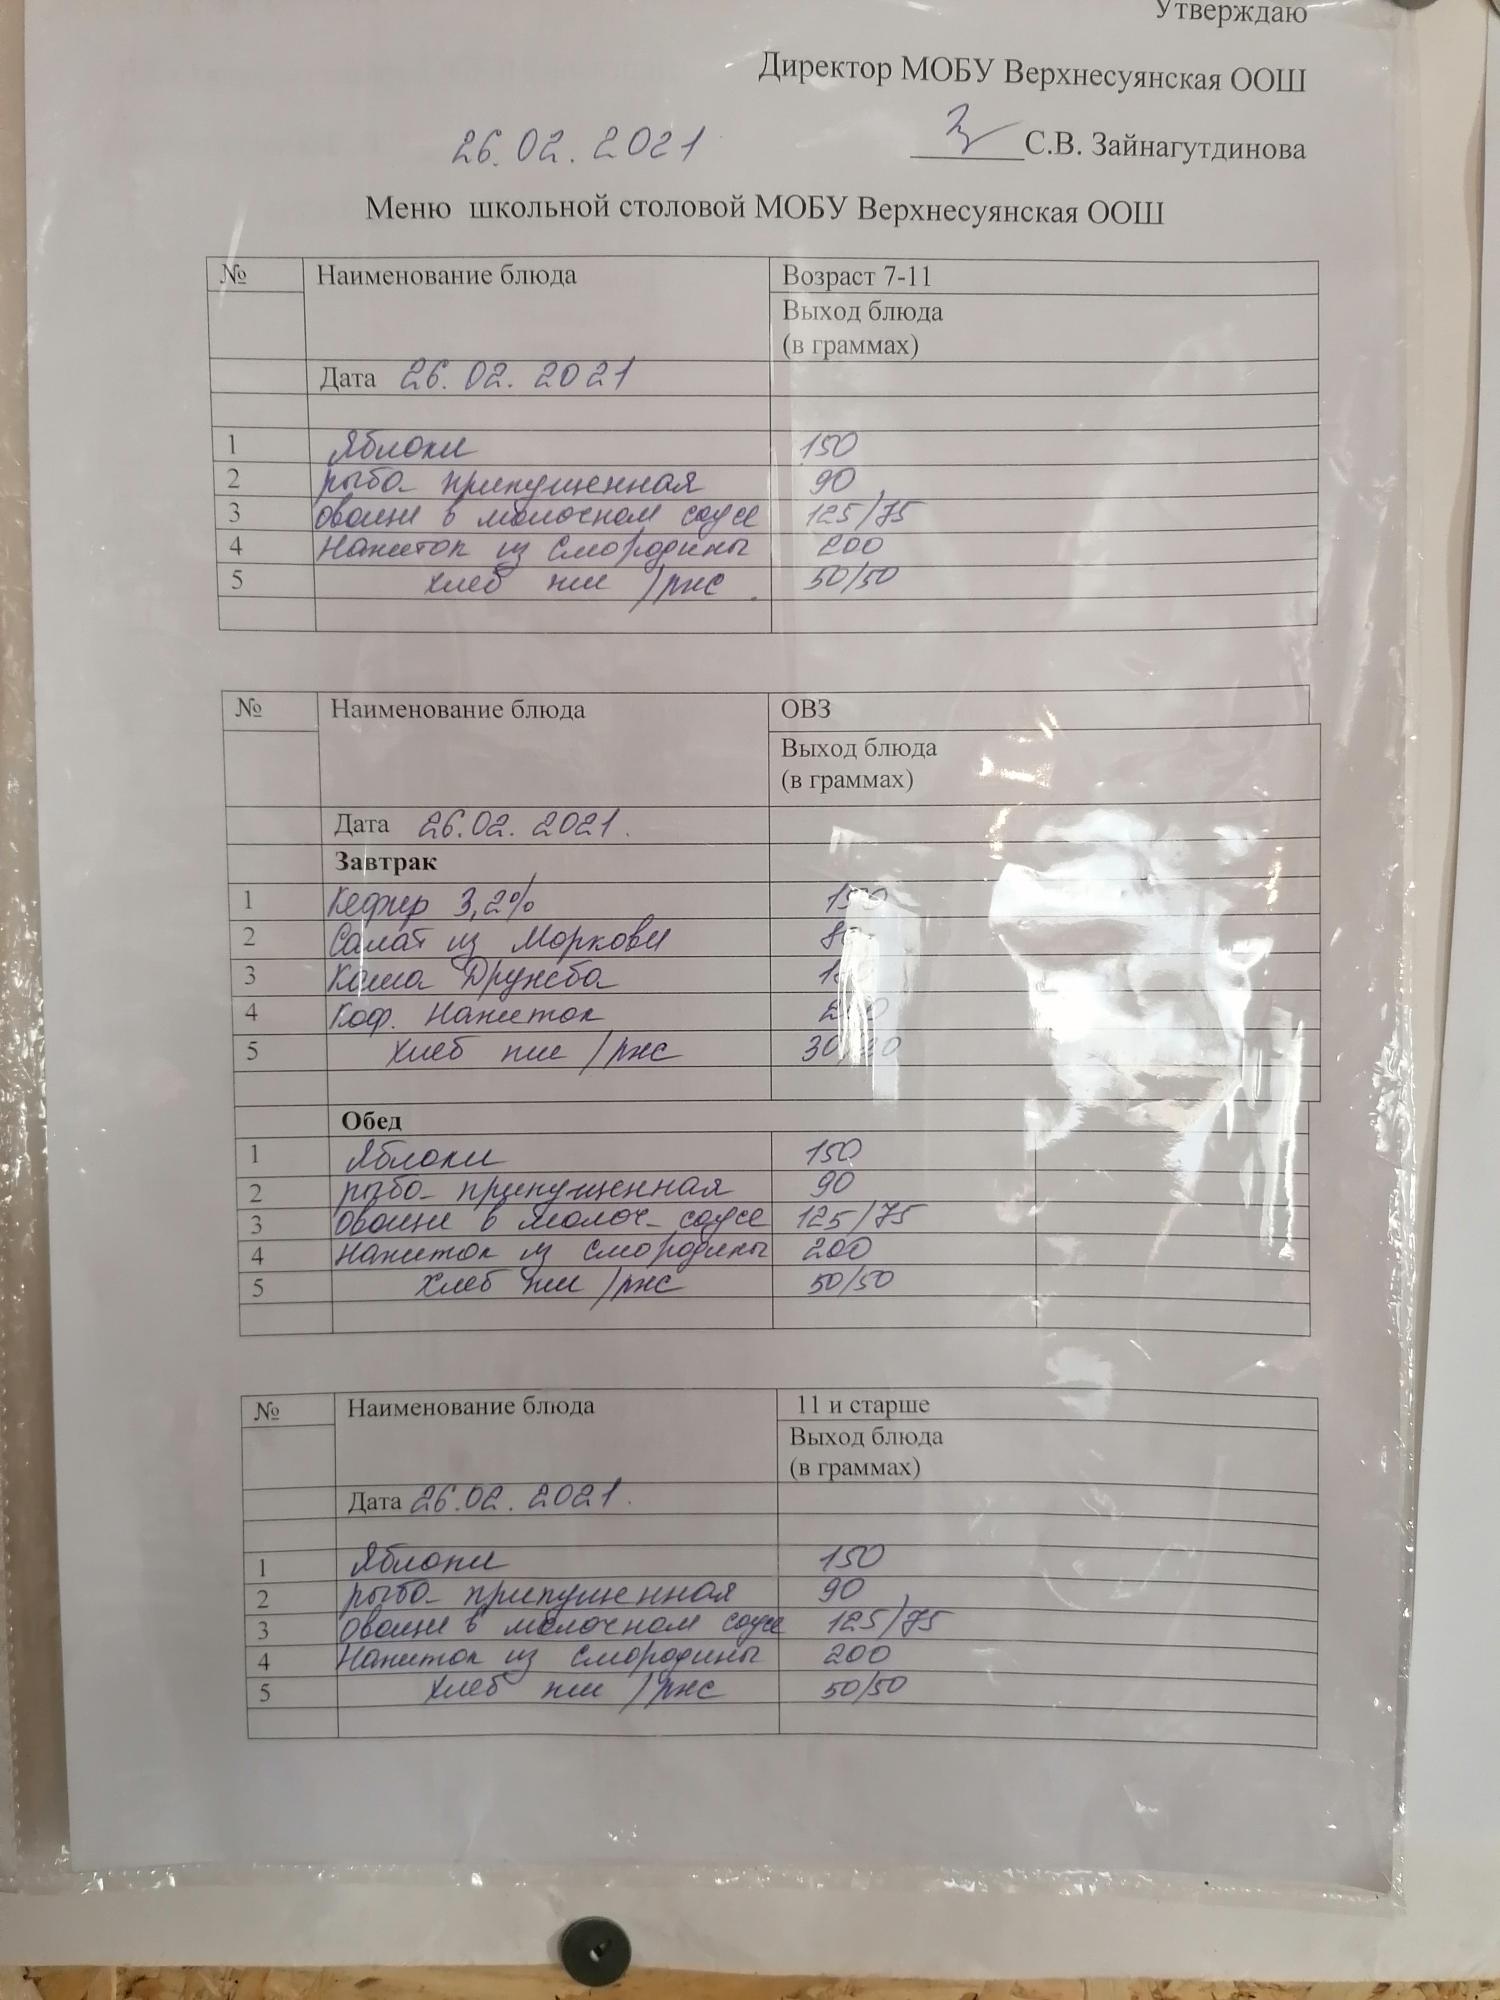 Утверждаю
Директор МОБУ Верхнесуянская ООШ
26.02.2021 С.В. Зайнагутдинова
Меню школьной столовой МОБУ Верхнесуянская ООШ
№ Наименование блюда Возраст 7-11
Выход блюда
(в граммах)
Дата 26.02.2021
1 Яблоки 150
2 рыба припущенная 90
3 овощи в молочном соусе 125/75
4 Напиток из смородины 200
5 хлеб пш /рж 50/50
№ Наименование блюда ОВЗ
Выход блюда
(в граммах)
Дата 26.02.2021.
Завтрак
1 Кефир 3,2%
2 Салат из Моркови
3 Каша Дружба
4 Коф. Напиток
5 хлеб пш /рж
Обед
1 Яблоки 150
2 рыба припущенная 90
3 Овощи в молоч- соусе 125/75
4 Напиток из смородины 200
5 хлеб пш /рж 50/50
№ Наименование блюда 11 и старше
Выход блюда
(в граммах)
Дата 26.02.2021.
1 Яблоки 150
2 рыба припущенная 90
3 Овощи в молочном соусе 125/75
4 Напиток из смородины 200
5 хлеб пш /рж 50/50